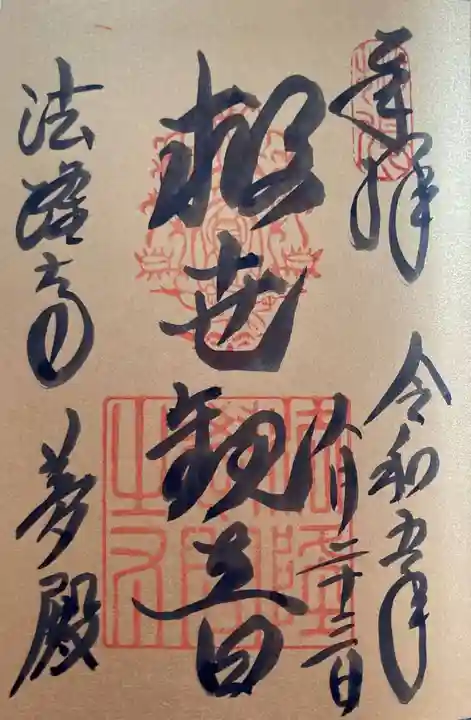 奉拝 令和五年
八月二十三日
救世観音
法隆寺 夢殿